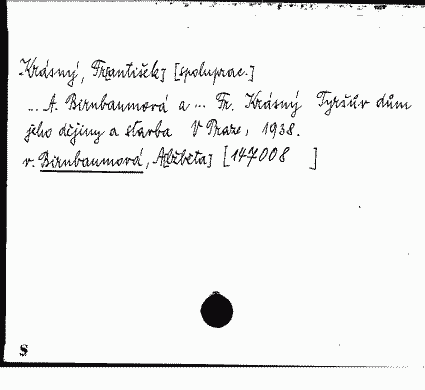 Krásný, František] [spoluprac.]
... A. Birnbaumová a ... Fr. Krásný Tyršův dům
jeho dějiny a stavba V Praze, 1938.
v. Birnbaumová, Alžběta] [147008 ]
S